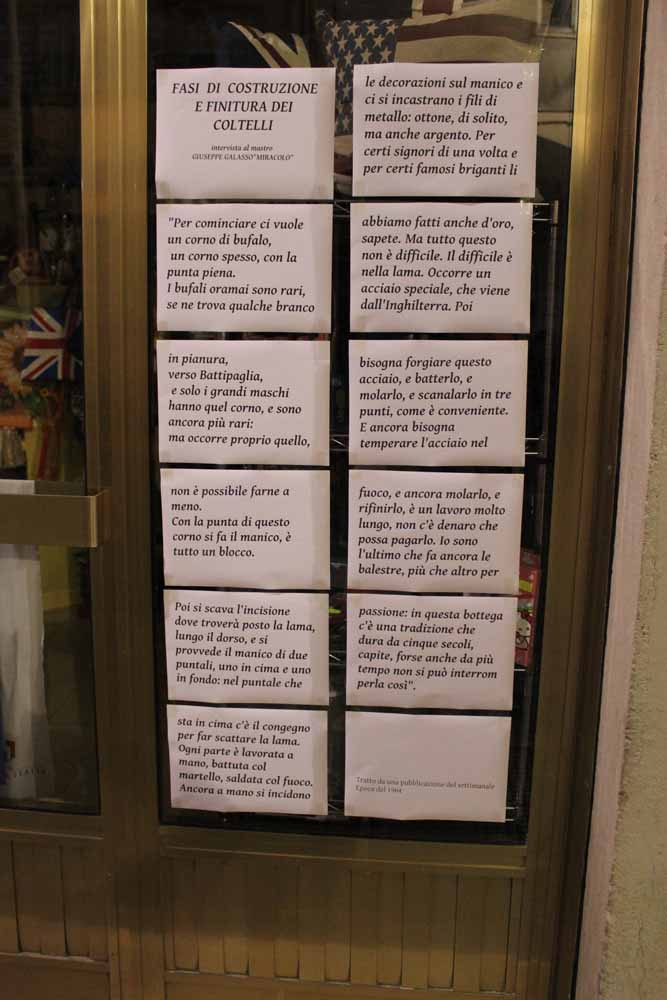 FASI DI COSTRUZIONE
E FINITURA DEI
COLTELLI
intervista al mastro
GIUSEPPE GALASSO"MIRACOLO"
"Per cominciare ci vuole
un corno di bufalo,
un corno spesso, con la
punta piena.
I bufali oramai sono rari,
se ne trova qualche branco
in pianura,
verso Battipaglia,
e solo i grandi maschi
hanno quel corno, e sono
ancora più rari:
ma occorre proprio quello,
non è possibile farne a
meno.
Con la punta di questo
corno si fa il manico, è
tutto un blocco.
Poi si scava l'incisione
dove troverà posto la lama,
lungo il dorso, e si
provvede il manico di due
puntali, uno in cima e uno
in fondo: nel puntale che
sta in cima c'è il congegno
per far scattare la lama.
Ogni parte è lavorata a
mano, battuta col
martello, saldata col fuoco.
Ancora a mano si incidono
le decorazioni sul manico e
ci si incastrano i fili di
metallo: ottone, di solito,
ma anche argento. Per
certi signori di una volta e
per certi famosi briganti li
abbiamo fatti anche d'oro,
sapete. Ma tutto questo
non è difficile. Il difficile è
nella lama. Occorre un
acciaio speciale, che viene
dall'Inghilterra. Poi
bisogna forgiare questo
acciaio, e batterlo, e
molarlo, e scanalarlo in tre
punti, come è conveniente.
E ancora bisogna
temperare l'acciaio nel
fuoco, e ancora molarlo, e
rifinirlo, è un lavoro molto
lungo, non c'è denaro che
possa pagarlo. Io sono
l'ultimo che fa ancora le
balestre, più che altro per
passione: in questa bottega
c'è una tradizione che
dura da cinque secoli,
capite, forse anche da più
tempo non si può interrom
perla così".
Tratto da una pubblicazione del settimanale
Epoca del 1964